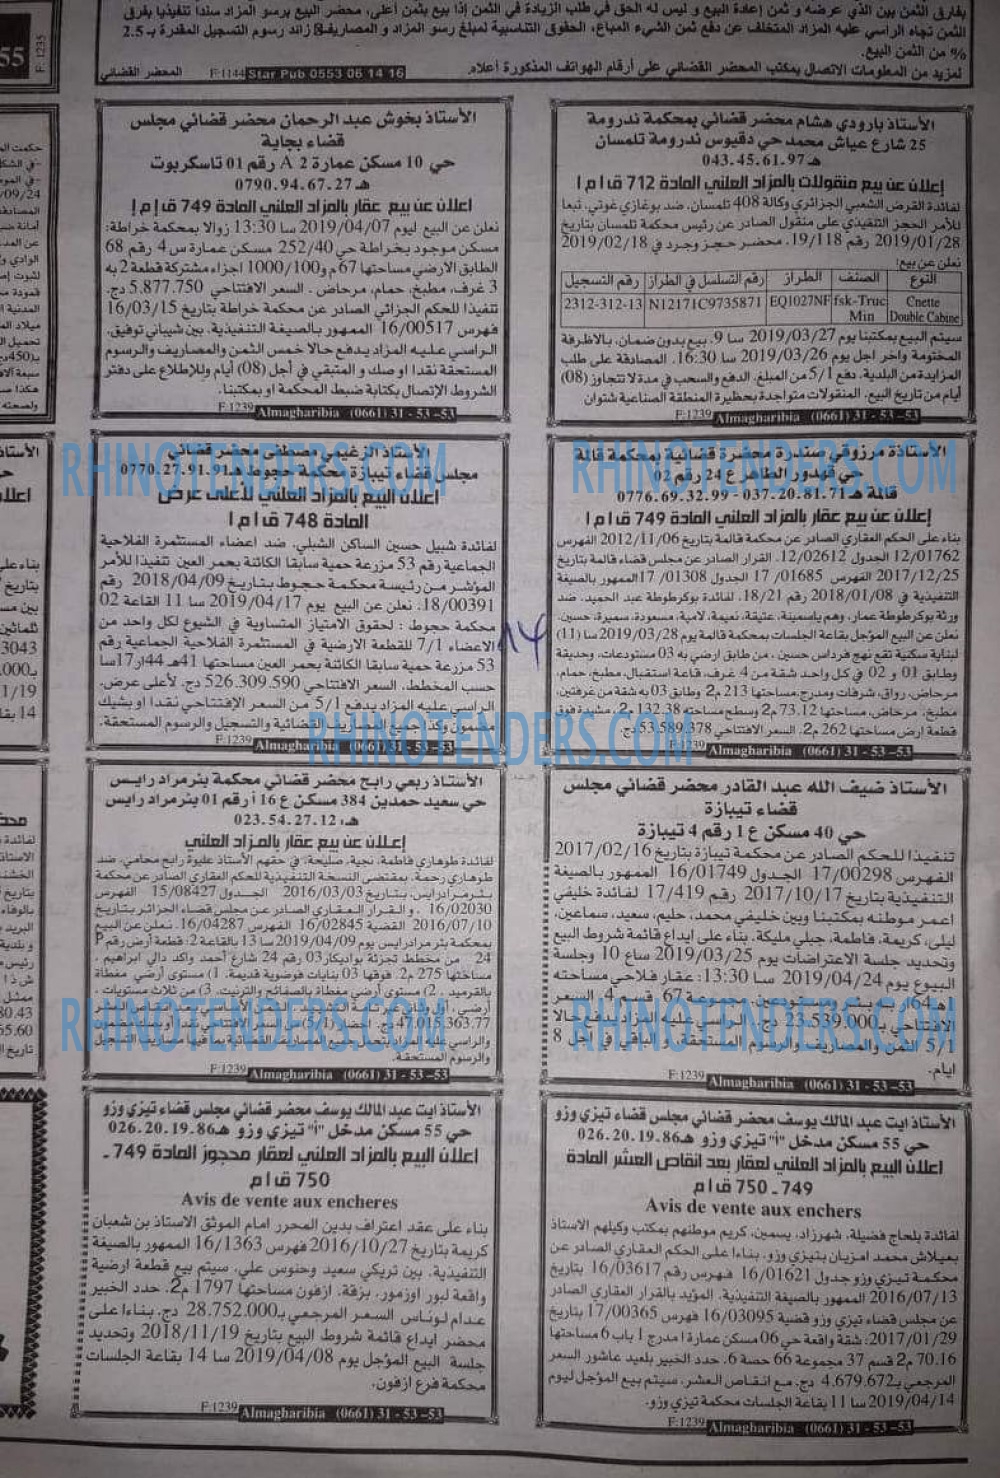 بفارق الثمن بين الذي عرضه و ثمن إعادة البيع و ليس له الحق في طلب الزيادة في الثمن إذا بيع بثمن أعلى، محضر البيع برسو المزاد سندا تنفيذيا بفرق
الثمن تجاه الراسي عليه المزاد المتخلف عن دفع ثمن الشيء المباع، الحقوق التناسبية لمبلغ رسو المزاد و المصاريف، زائد رسوم التسجيل المقدرة بـ 2.5
% من الثمن البيع.
لمزيد من المعلومات الاتصال بمكتب المحضر القضائي على أرقام الهواتف المذكورة أعلاه.
المحضر القضائي F:1144 Star Pub 0553 06 14 16
الأستاذ بارودي هشام محضر قضائي بمحكمة ندرومة
25 شارع عياش محمد حي دقيوس ندرومة تلمسان
هـ 043.45.61.97
إعلان عن بيع منقولات بالمزاد العلني المادة 712 ق ا م ا
لفائدة القرض الشعبي الجزائري وكالة 408 تلمسان، ضد بوغازي غوتي، تبعا
للأمر الحجز التنفيذي على منقول الصادر عن رئيس محكمة تلمسان بتاريخ
2019/01/28 رقم 19/118، محضر حجز وجرد في 2019/02/18
نعلن عن بيع:
النوع الصنف الطراز رقم التسلسل في الطراز رقم التسجيل
Cnette Double Cabine fsk-Truc Min EQ1027NF N12171C9735871 2312-312-13
سيتم البيع بمكتبنا يوم 2019/03/27 سا 9، بيع بدون ضمان، بالاظرفة
المختومة واخر اجل يوم 2019/03/26 سا 16:30، المصادقة على طلب
المزايدة من البلدية، دفع 5/1 من المبلغ، الدفع والسحب في مدة لا تتجاوز (08)
أيام من تاريخ البيع، المنقولات متواجدة بحظيرة المنطقة الصناعية شتوان
F:1239 Almagharibia (0661) 31 - 53 -53
الأستاذ بخوش عبد الرحمان محضر قضائي مجلس
قضاء بجاية
حي 10 مسكن عمارة A 2 رقم 01 تاسكريوت
هـ 0790.94.67.27
اعلان عن بيع عقار بالمزاد العلني المادة 749 ق إ م إ
نعلن عن البيع ليوم 2019/04/07 سا 13:30 زوالا بمحكمة خراطة:
مسكن موجود بخراطة حي 252/40 مسكن عمارة س 4 رقم 68
الطابق الارضي مساحتها 67 م و1000/100 اجزاء مشتركة قطعة 2 به
3 غرف، مطبخ، حمام، مرحاض . السعر الافتتاحي 5.877.750 دج.
تنفيذا للحكم الجزائي الصادر عن محكمة خراطة بتاريخ 16/03/15
فهرس 16/00517 الممهور بالصيغة التنفيذية، بين شيباني توفيق،
الراسي عليه المزاد يدفع حالا خمس الثمن والمصاريف والرسوم
المستحقة نقدا او صك و المتبقي في أجل (08) أيام وللإطلاع على دفتر
الشروط الإتصال بكتابة ضبط المحكمة او بمكتبنا.
F:1239 Almagharibia (0661) 31 - 53 -53
الأستاذة مرزوقي صندرة محضرة قضائية بمحكمة قالمة
حي قهدور الطاهر ع 24 رقم 02
قالمة هـ 037.20.81.71 - 0776.69.32.99
إعلان عن بيع عقار بالمزاد العلني المادة 749 ق ا م ا
بناء على الحكم العقاري الصادر عن محكمة قالمة بتاريخ 2012/11/06 الفهرس
12/01762 الجدول 12/02612، القرار الصادر عن مجلس قضاء قالمة بتاريخ
2017/12/25 الفهرس 17/01685 الجدول 17/01308 الممهور بالصيغة
التنفيذية في 2018/01/08 رقم 18/21، لفائدة بوكرطوطة عبد الحميد، ضد
ورثة بوكرطوطة عمار، وهم ياسمينة، عتيقة، نعيمة، لامية، مسعودة، سميرة، حسين.
نعلن عن البيع المؤجل بقاعة الجلسات بمحكمة قالمة يوم 2019/03/28 سا (11)
لبناية سكنية تقع نهج فرداس حسين، من طابق ارضي به 03 مستودعات، وحديقة
وطابق 01 و 02 في كل واحد شقة من 4 غرف، قاعة استقبال، مطبخ، حمام،
مرحاض، رواق، شرفات ومدرج، مساحتها 213 م2 وطابق 03 به شقة من غرفتين،
مطبخ، مرحاض، مساحتها 73.12 م2 وسطح مساحته 132.38 م2، مشيدة فوق
قطعة ارض مساحتها 262 م2، السعر الافتتاحي 53.589.378 دج.
F:1239 Almagharibia (0661) 31 - 53 -53
الأستاذ الزغيمي مصطفى محضر قضائي
مجلس قضاء تيبازة محكمة حجوط هـ 0770.27.91.91
إعلان البيع بالمزاد العلني لأعلى عرض
المادة 748 ق ا م ا
لفائدة شبيل حسين الساكن الشبلي، ضد اعضاء المستثمرة الفلاحية
الجماعية رقم 53 مزرعة حمية سابقا الكائنة بحمر العين تنفيذا للأمر
المؤشر من رئيسة محكمة حجوط بتاريخ 2018/04/09 رقم
18/00391، نعلن عن البيع يوم 2019/04/17 سا 11 القاعة 02
محكمة حجوط : لحقوق الامتياز المتساوية في الشيوع لكل واحد من
الاعضاء 7/1 للقطعة الارضية في المستثمرة الفلاحية الجماعية رقم
53 مزرعة حمية سابقا الكائنة بحمر العين مساحتها 41هـ 44ار 17سا
حسب المخطط، السعر الافتتاحي 526.309.590 دج، لأعلى عرض.
الراسي عليه المزاد يدفع 5/1 من السعر الإفتتاحي نقدا او بشيك
مضمون وكذا جميع المصاريف القضائية والتسجيل والرسوم المستحقة.
F:1239 Almagharibia (0661) 31 - 53 -53
14
الأستاذ ضيف الله عبد القادر محضر قضائي مجلس
قضاء تيبازة
حي 40 مسكن ع 1 رقم 4 تيبازة
تنفيذا للحكم الصادر عن محكمة تيبازة بتاريخ 2017/02/16
الفهرس 17/00298 الجدول 16/01749 الممهور بالصيغة
التنفيذية بتاريخ 2017/10/17 رقم 17/419 لفائدة خليفي
اعمر موطنه بمكتبنا وبين خليفي محمد، حليم، سعيد، سماعين،
ليلى، كريمة، فاطمة، جبلي مليكة، بناء على ايداع قائمة شروط البيع
وتحديد جلسة الاعتراضات يوم 2019/03/25 ساع 10 وجلسة
البيوع يوم 2019/04/24 سا 13:30: عقار فلاحي مساحته
مجموعة 67 قسم 4، السعر
الافتتاحي بـ 23.539.000 دج، الراسي عليه المزاد يدفع حالا
5/1 الثمن والمصاريف والرسوم المستحقة، و الباقي في اجل 8
ايام.
F:1239 Almagharibia (0661) 31 - 53 -53
الأستاذ ربعي رابح محضر قضائي محكمة بئر مراد رايس
حي سعيد حمدين 384 مسكن ع 16 أ رقم 01 بئر مراد رايس
هـ: 023.54.27.12
إعلان عن بيع عقار بالمزاد العلني
لفائدة طوهاري فاطمة، نجية، صليحة، في حقهم الأستاذ عليوة رابح محامي، ضد
طوهاري رحمة، بمقتضى النسخة التنفيذية للحكم العقاري الصادر عن محكمة
بئر مراد رايس، بتاريخ 2016/03/03 الجدول 15/08427 الفهرس
16/02030 ، و القرار العقاري الصادر عن مجلس قضاء الجزائر بتاريخ
2016/07/10 القضية 16/02845 الفهرس 16/04287، نعلن عن البيع
بمحكمة بئر مراد رايس يوم 2019/04/09 سا 13 بالقاعة 2: قطعة أرض رقم P
24 من مخطط تجزئة بواديكار 03 رقم 24 شارع أحمد واكد دالي ابراهيم ،
مساحتها 275 م2، فوقها 03 بنايات فوضوية قديمة، 1) مستوى أرضي مغطاة
بالقرميد ، 2) مستوى أرضي مغطاة بالصفائح والترنيت، 3) من ثلاث مستويات ،
47.015.363,77 دج، احضار (5/1) من السعر الافتتاحي نقدا أو بصك مضمون
والراسي عليه المزاد يتحمل جميع المصاريف القضائية بما فيها مصاريف التسجيل
والرسوم المستحقة.
F:1239 Almagharibia (0661) 31 - 53 -53
الأستاذ ايت عبد المالك يوسف محضر قضائي مجلس قضاء تيزي وزو
حي 55 مسكن مدخل "أ" تيزي وزو هـ 026.20.19.86
اعلان البيع بالمزاد العلني لعقار بعد انقاص العشر المادة
749 ـ 750 ق ا م
Avis de vente aux enchers
لفائدة بلحاج فضيلة، شهرزاد، يسمين، كريم موطنهم بمكتب وكيلهم الاستاذ
بعيلاش محمد امزيان بتيزي وزو، بناءا على الحكم العقاري الصادر عن
محكمة تيزي وزو جدول 16/01621 فهرس رقم 16/03617 بتاريخ
2016/07/13 الممهور بالصيغة التنفيذية، المؤيد بالقرار العقاري الصادر
عن مجلس قضاء تيزي وزو قضية 16/03095 فهرس 17/00365 بتاريخ
2017/01/29: شقة واقعة حي 06 مسكن عمارة ا مدرج 1 باب 6 مساحتها
70.16 م2 قسم 37 مجموعة 66 حصة 6، حدد الخبير بلعيد عاشور السعر
المرجعي بـ 4.679.672 دج، مع انقاص العشر، سيتم بيع المؤجل ليوم
2019/04/14 سا 11 بقاعات الجلسات محكمة تيزي وزو.
F:1239 Almagharibia (0661) 31 - 53 -53
الأستاذ ايت عبد المالك يوسف محضر قضائي مجلس قضاء تيزي وزو
حي 55 مسكن مدخل "أ" تيزي وزو هـ 026.20.19.86
اعلان البيع بالمزاد العلني لعقار محجوز المادة 749 ـ
750 ق ا م
Avis de vente aux encheres
بناء على عقد اعتراف بدين المحرر امام الموثق الاستاذ بن شعبان
كريمة بتاريخ 2016/10/27 فهرس 16/1363 الممهور بالصيغة
التنفيذية، بين تريكي سعيد وحنوس علي، سيتم بيع قطعة ارضية
واقعة لبور اوزمور، بزقة، ازفون مساحتها 1797 م2، حدد الخبير
عدام لوناس السعر المرجعي بـ 28.752.000 دج، بناءا على
محضر ايداع قائمة شروط البيع بتاريخ 2018/11/19 وتحديد
جلسة البيع المؤجل يوم 2019/04/08 سا 14 بقاعة الجلسات
محكمة فرع ازفون.
F:1239 Almagharibia (0661) 31 - 53 -53
RHINOTENDERS.COM
RHINOTENDERS.COM
RHINOTENDERS.COM
RHINOTENDERS.COM
RHINOTENDERS.COM